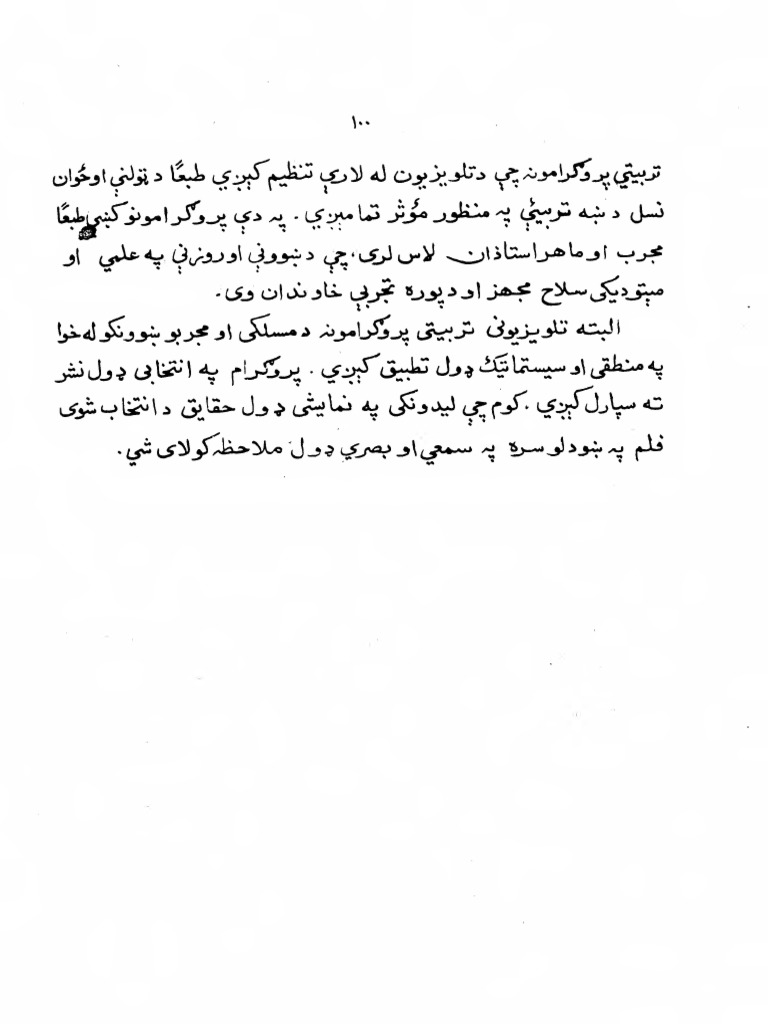 ۱۰۰
تربيتي پروګرامونه چې دتلويزيون له لارې تنظيم کېږي طبعًا د ټولنې اوځوان
نسل د ښه تربيې په منظور مؤثر تمامېږي . په دې پروګرامونو کښې طبعًا
مجرب او ماهر استاذان لاس لری، چې د ښوونې اوروزنې په علمي او
ميتوديکی سلاح مجهز او د پوره تجربې خاوندان وی .
البته تلويزيونی تربيتی پروګرامونه دمسلکی او مجربو ښوونکو له خوا
په منطقی او سيستماتيک ډول تطبيق کېږي . پروګرام په انتخابی ډول نشر
ته سپارل کېږي . کوم چې ليدونکی په نمايشی ډول حقايق د انتخاب شوی
فلم په ښودلو سره په سمعي او بصري ډول ملاحظه کولای شي .